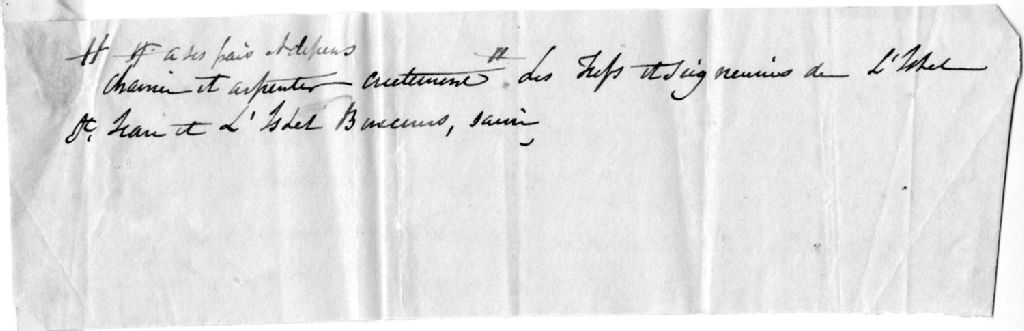 # # a ses frais et depens
chainer et arpenter exactement # Les Fiefs et Seigneuries de L'Islet
St. Jean et L'Islet Bonsecours, savoir